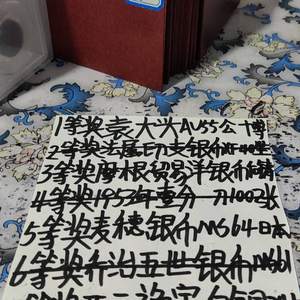 1等奖袁大头AU55公博
2等奖法属印支银币
3等奖摩根贸易洋银币
4等奖1953年壹分一刀100张
5等奖麦穗银币MS64日本
6等奖乔治五世银币MS61